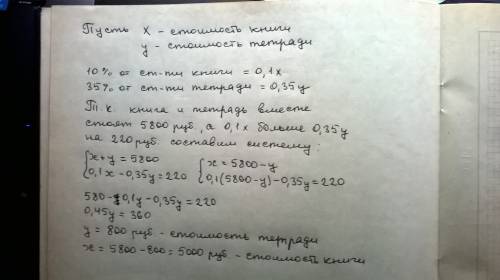 Пусть х - стоимость книги
у - стоимость тетради
10% от ст-ти книги = 0,1х
35% от ст-ти тетради = 0,35у
Т.к. книга и тетрадь вместе
стоят 5800 руб., а 0,1х больше 0,35у
на 220 руб. составим систему:
{х+у = 5800 {х = 5800-у
{0,1х - 0,35у = 220 {0,1(5800-у) - 0,35у = 220
580 - 0,1у - 0,35у = 220
0,45у = 360
у = 800 руб - стоимость тетради
х = 5800 - 800 = 5000 руб - стоимость книги